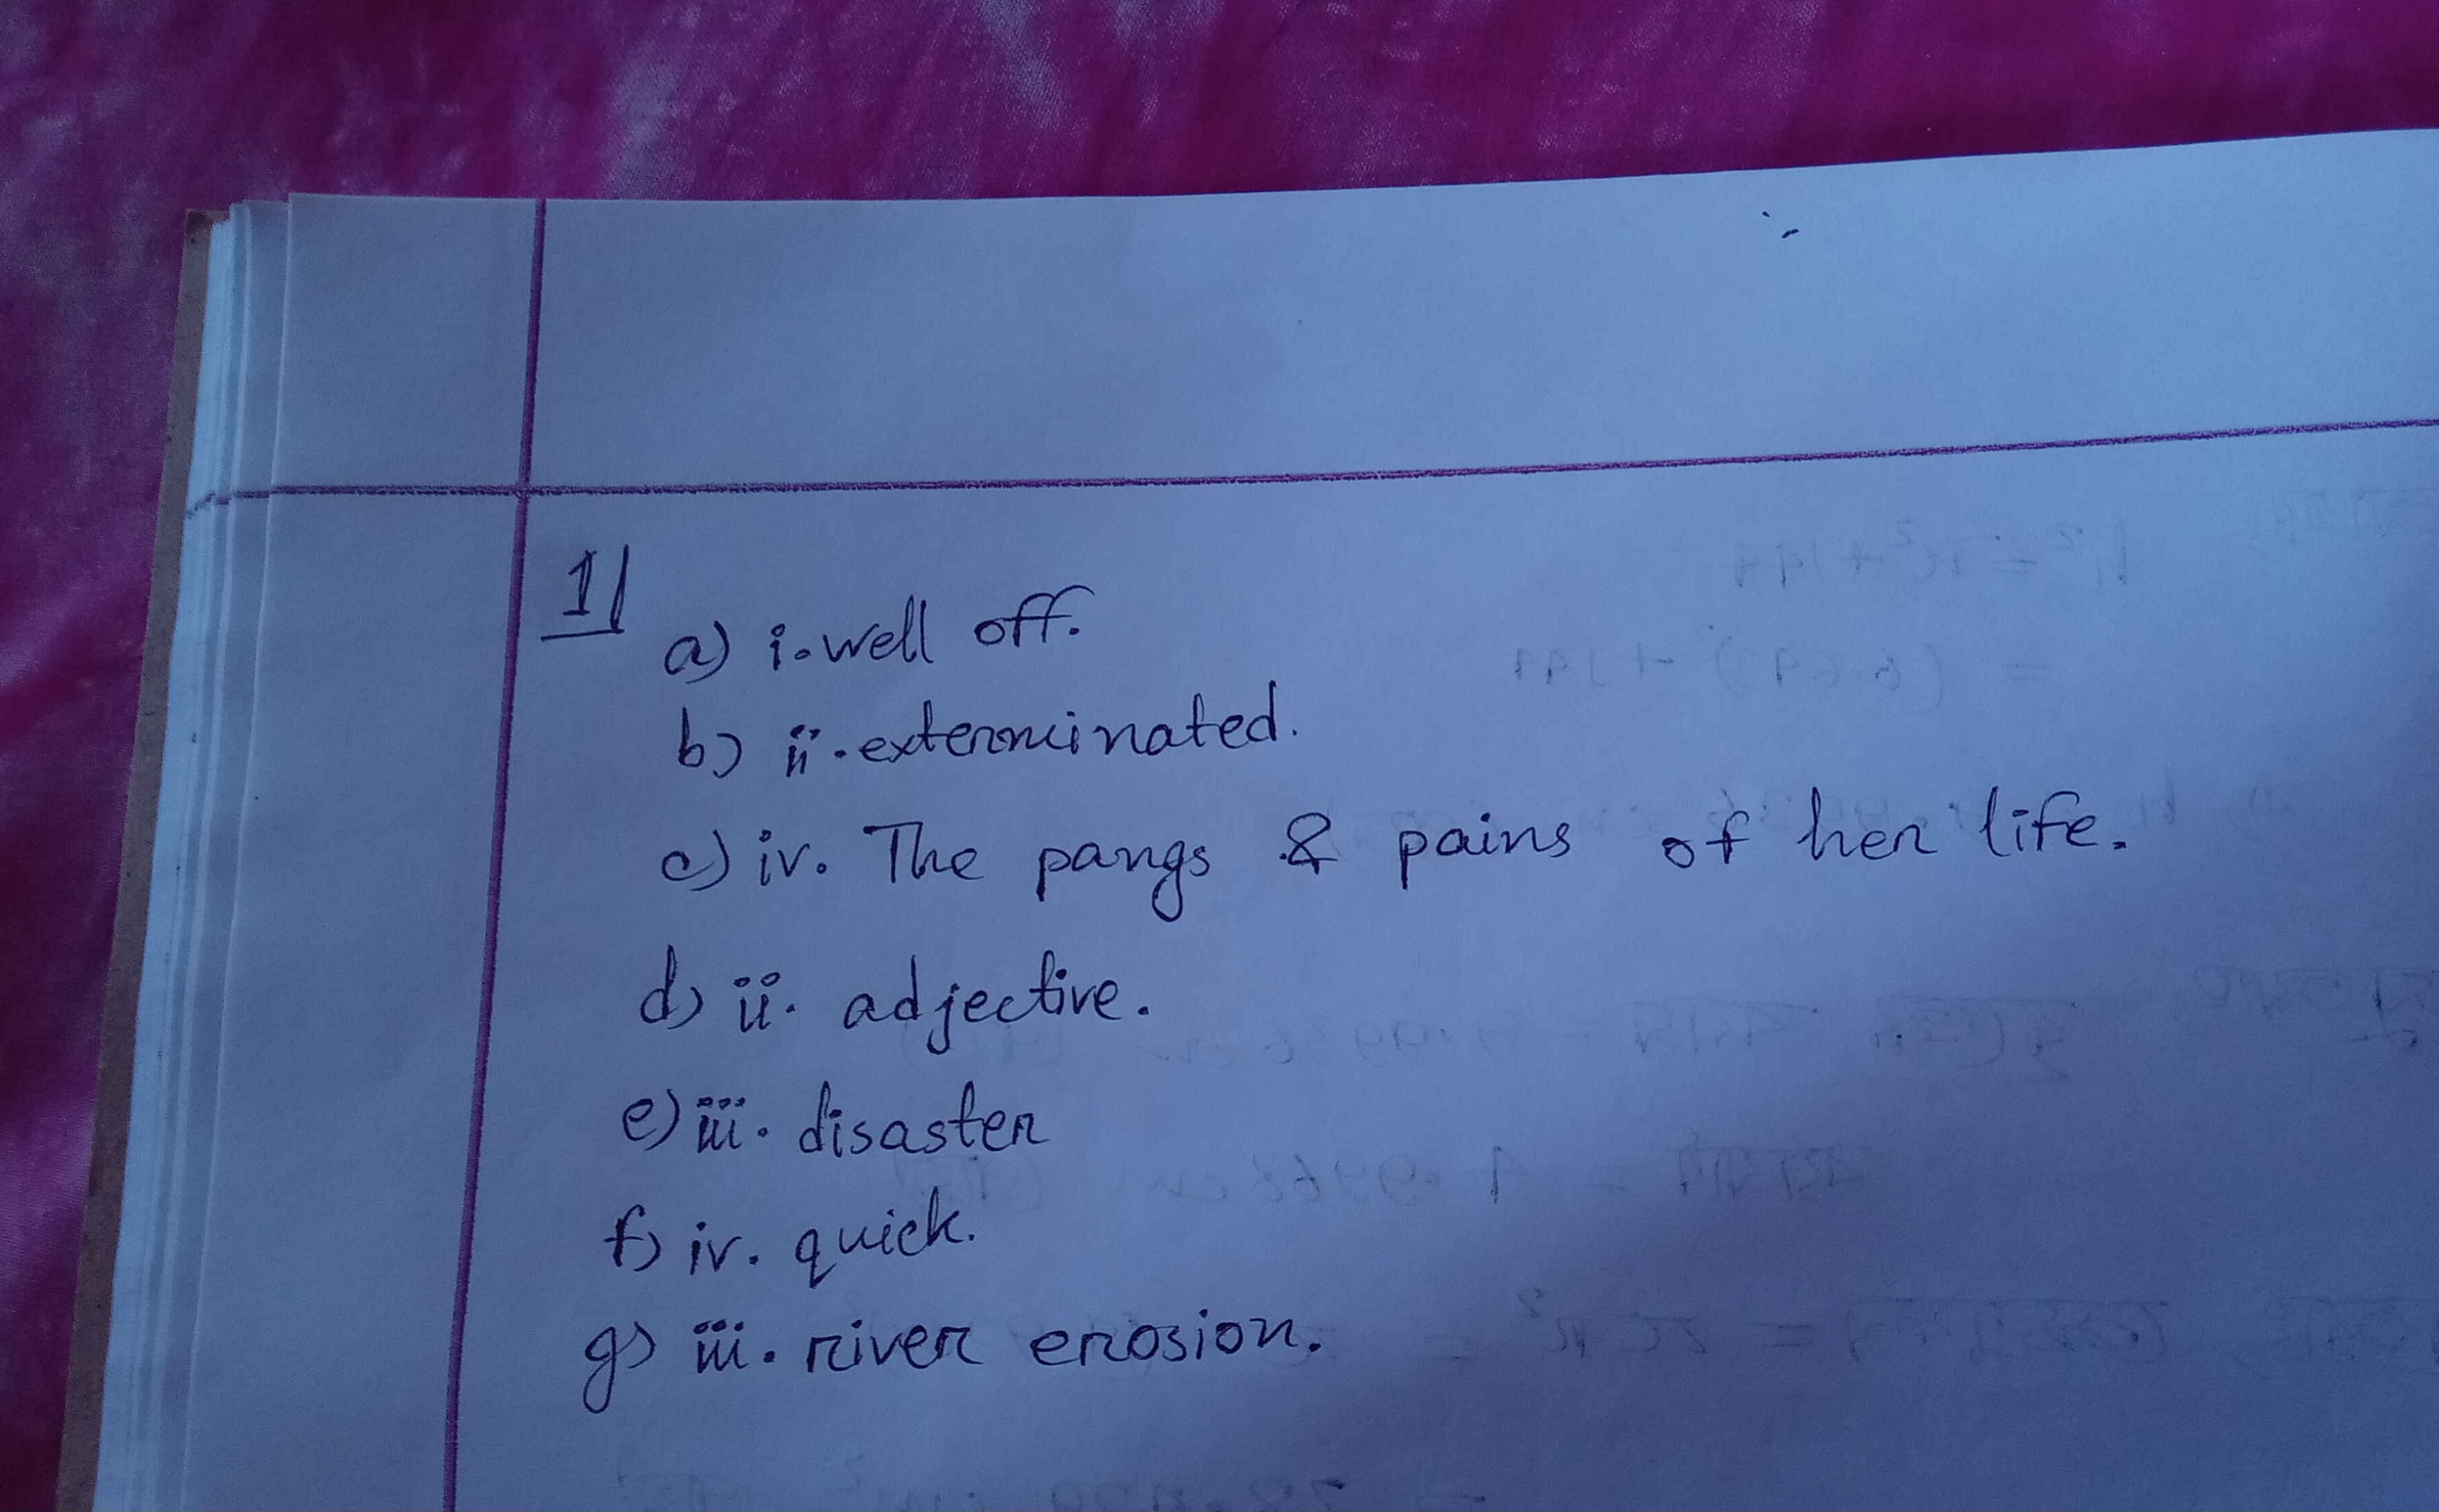 1/
a) i. well off.
b) ii. exterminated.
c) iv. The pangs & pains of her life.
d) ii. adjective.
e) iii. disaster
f) iv. quick.
g) iii. river erosion.